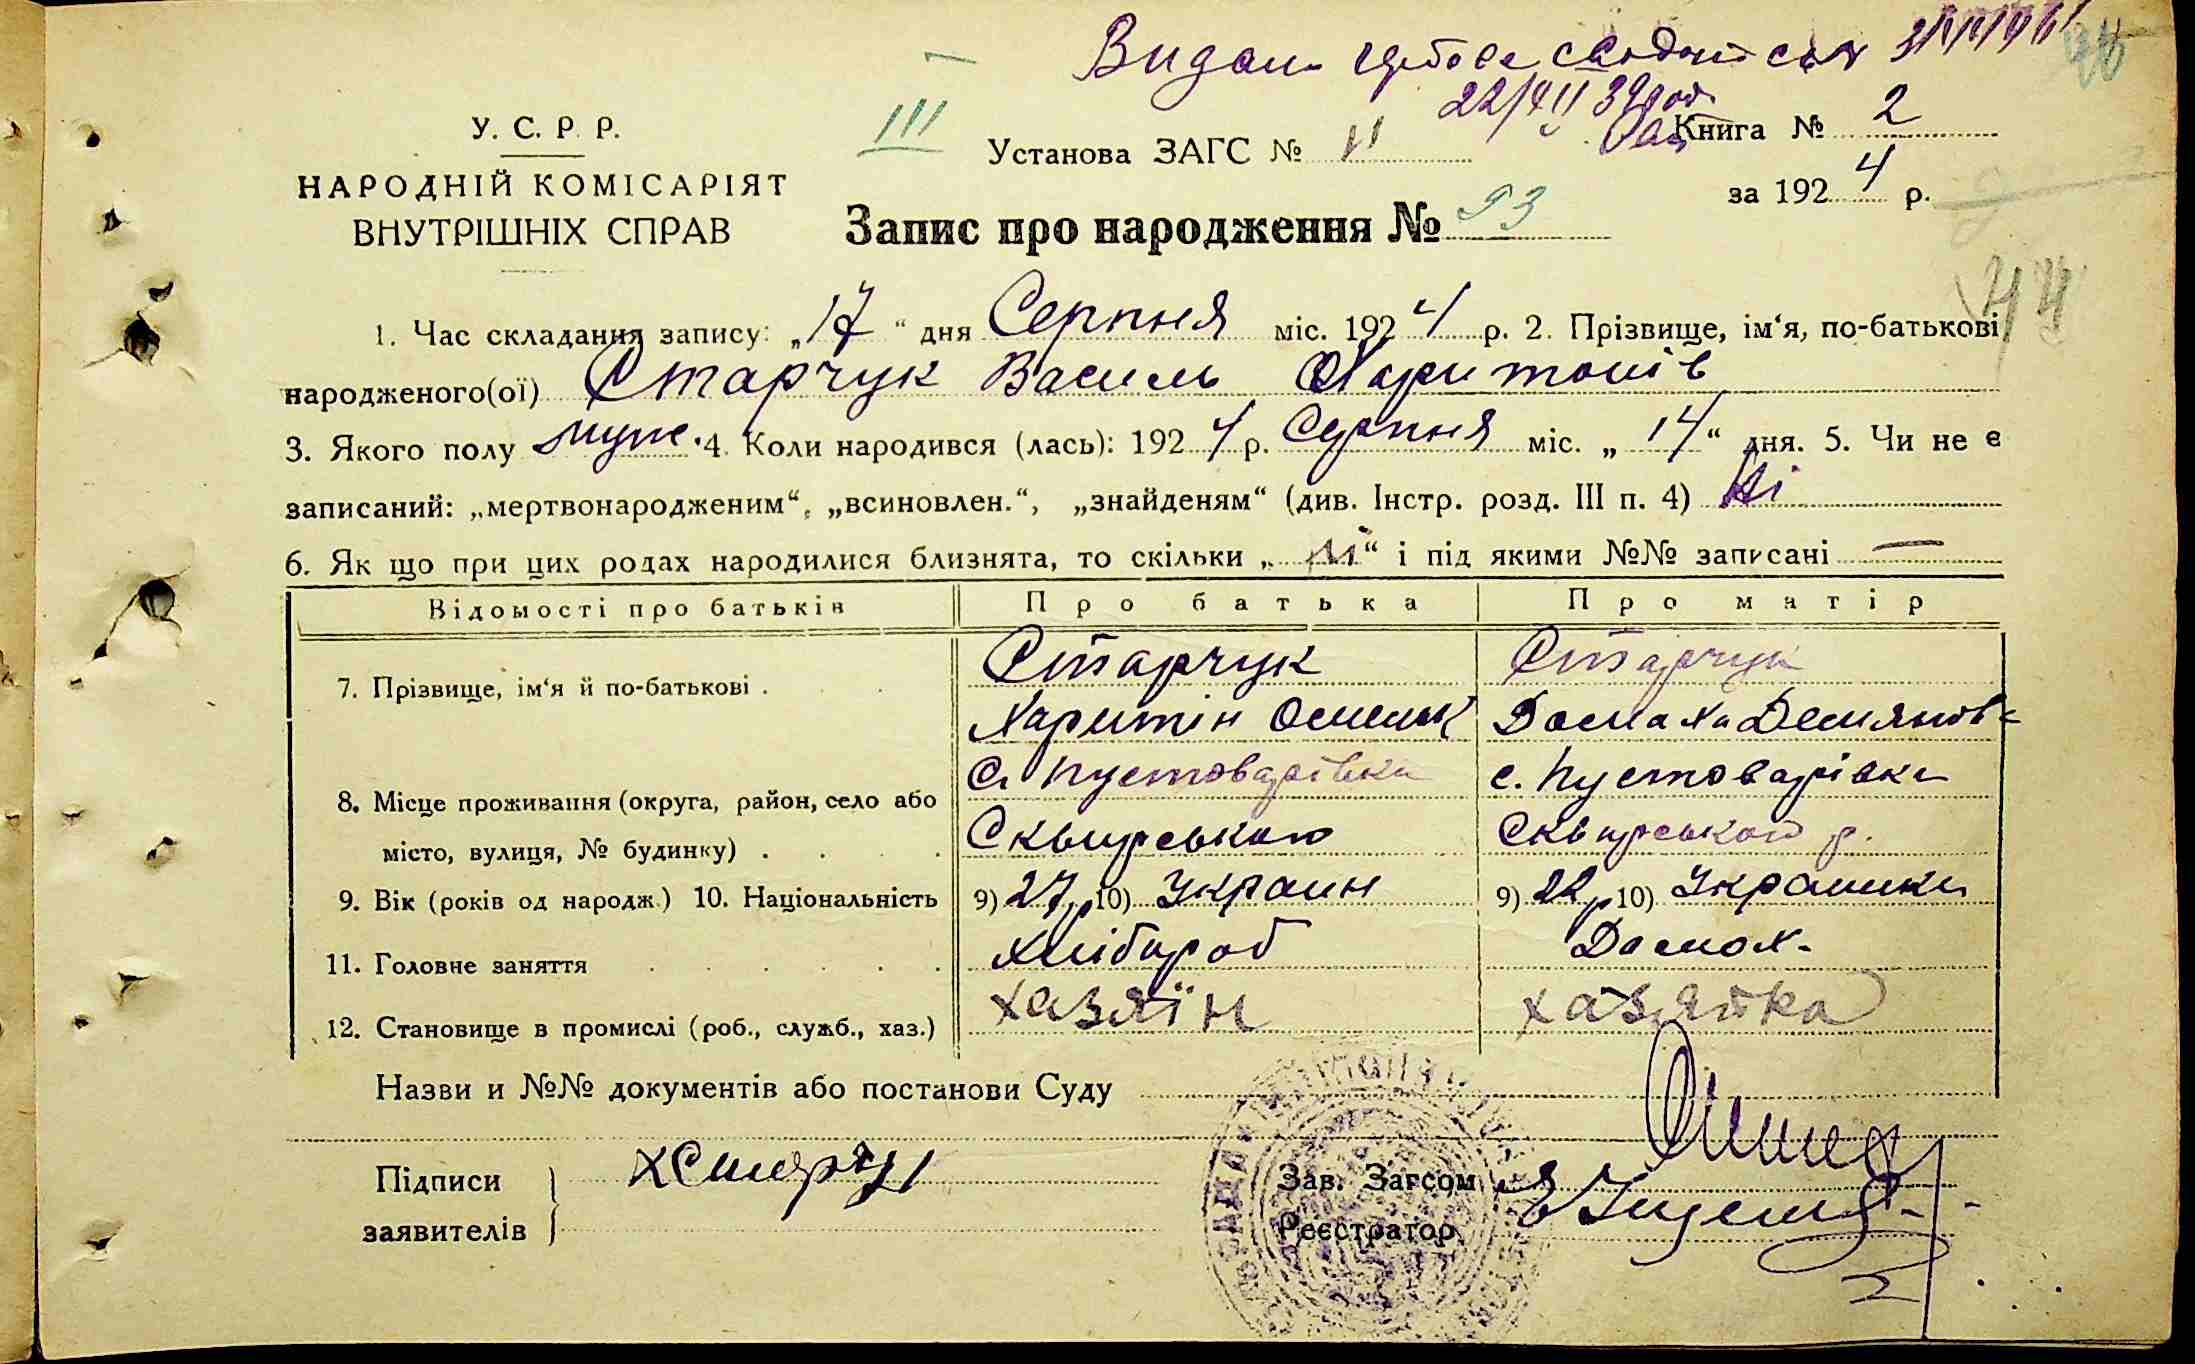 Видан
22/VII 39 год.
У. С. Р. Р.
III
Установа ЗАГС № 11
Книга № 2
НАРОДНІЙ КОМІСАРІЯТ
ВНУТРІШНІХ СПРАВ
за 1924 р.
Запис про народження № 93
44
1. Час складання запису: „17“ дня Серпня міс. 1924 р. 2. Прізвище, ім‘я, по-батькові
народженого(ої) Старчук Василь Харитонів
3. Якого полу муж. 4. Коли народився (лась): 1924 р. Серпня міс. „14“ дня. 5. Чи не є
записаний: „мертвонародженим“, „всиновлен.“, „знайденям“ (див. Інстр. розд. III п. 4) Ні
6. Як що при цих родах народилися близнята, то скільки „ні“ і під якими №№ записані —
Відомості про батьків Про батька Про матір
7. Прізвище, ім‘я й по-батькові . Старчук Старчук
Харитін Омельк Домаха Демянов-
с. Пустоварівка с. Пустоварівка
8. Місце проживання (округа, район, село або
місто, вулиця, № будинку) . Сквирського Сквирського р.
9. Вік (років од народж.) 10. Національність 9) 27 р 10) Украин 9) 22 р 10) Украинка
11. Головне заняття Хлібороб Домох.
12. Становище в промислі (роб., служб., хаз.) хазяїн хазяйка
Назви и №№ документів або постанови Суду
Підписи
заявителів
Зав. Загсом
Реєстратор